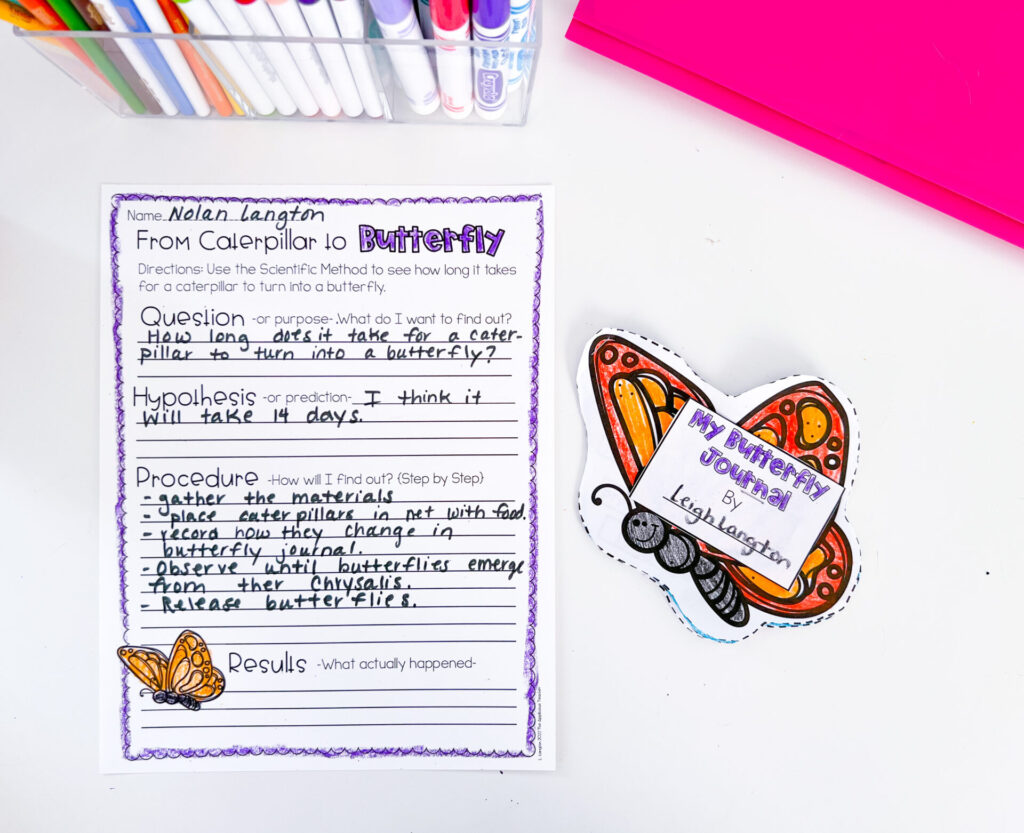 Crayola
Name Nolan Langton
From Caterpillar to Butterfly
Directions: Use the Scientific Method to see how long it takes
for a caterpillar to turn into a butterfly.
Question -or purpose- .What do I want to find out?
How long does it take for a cater-
pillar to turn into a butterfly?
Hypothesis -or prediction- I think it
will take 14 days.
Procedure -How will I find out? {Step by Step}
- gather the materials
- place caterpillars in net with food.
- record how they change in
butterfly journal.
- Observe until butterflies emerge
from ther Chrysalis.
- Release butterflies.
Results -What actually happened-
My Butterfly
Journal
By
Leigh Langton